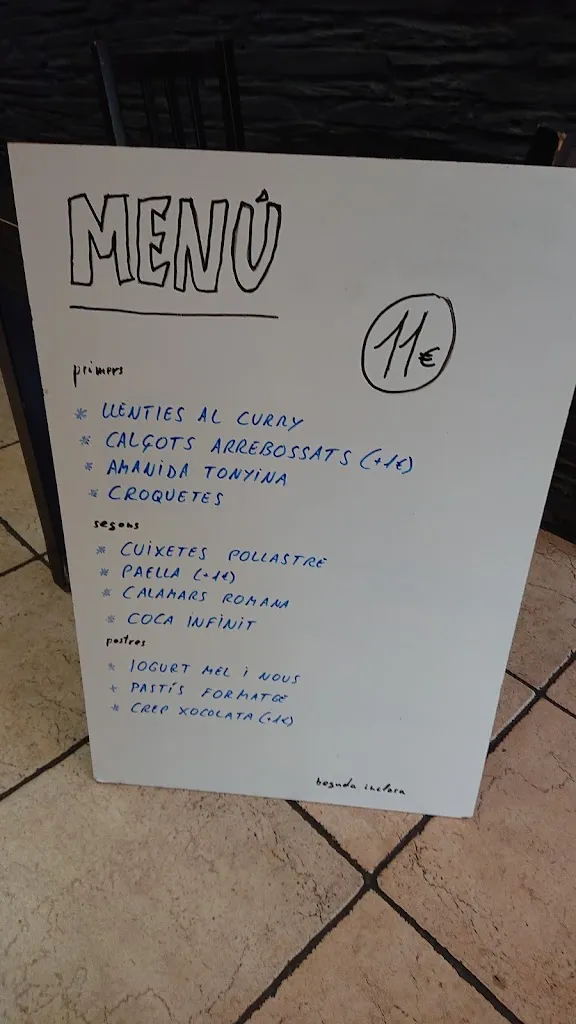 MENÚ
11€
primers
* LLENTIES AL CURRY
* CALÇOTS ARREBOSSATS (+1€)
* AMANIDA TONYINA
* CROQUETES
segons
* CUIXETES POLLASTRE
* PAELLA (+1€)
* CALAMARS ROMANA
* COCA INFINIT
postres
* IOGURT MEL I NOUS
* PASTÍS FORMATGE
* CREP XOCOLATA (+1€)
beguda inclosa